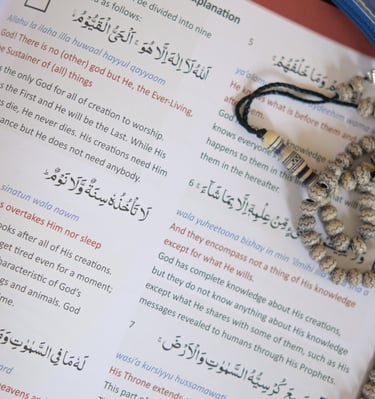 xplanation
be divided into nine
as follows:
اَللّٰهُ لَآ اِلٰهَ اِلَّا هُوَ ۚ اَلْحَيُّ الْقَيُّوْمُ ۚ
Allahu la ilaha illa huwaal hayyul qayyoom
God! There is no (other) god but He, the Ever-Living,
he Sustainer of (all) things
s the only God for all of creation to worship.
s the First and He will be the Last. While His
s die, He never dies. His creations need Him
ance but He does not need anybody.
لَا تَاْخُذُهٗ سِنَةٌ وَّلَا نَوْمٌ ؕ
sinatun wala nawm
s overtakes Him nor sleep
ooks after all of His creations.
get tired even for a moment;
characteristic of God's
ngs and animals. God
me.
لَهٗ مَا فِي السَّمٰوٰتِ
ard
heavens a
5
وَمَا خَلْفَهُمْ ۚ
ya'
knows what is before them and
after them.
God
knows everyone
happens to them in this
them in the hereafter.
6
مِّنْ عِلْمِهٖٓ اِلَّا بِمَا شَآءَ ۚ
wala yuheetoona bishay in min 'ilmihi
And they encompass not a thing of His knowledge
except for what He wills.
God has complete knowledge about His creations,
but they do not know anything about His knowledge
except what He shares with some of them, such as His
messages revealed to humans through His Prophets.
7
وَسِعَ كُرْسِيُّهُ السَّمٰوٰتِ وَالْاَرْضَ ۚ
wasi'a kursiyyu hussamawati
His Throne extends
This part